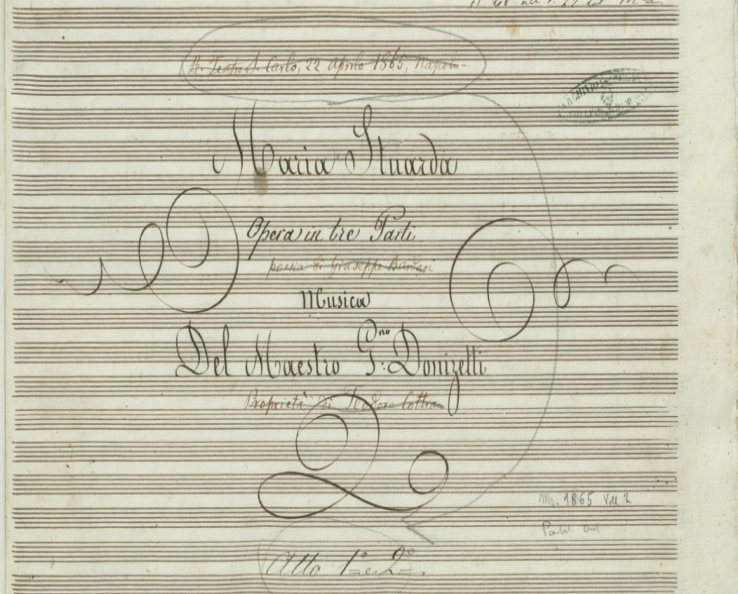 R. Teatro S. Carlo, 22 Aprile 1865, Napoli-
Maria Stuarda
Opera in tre Parti
poesia di Giuseppe Bardari
Musica
Del Maestro G:no Donizetti
Proprietà di Teodoro Cottrau
Ms. 1865
Atto 1º e 2º